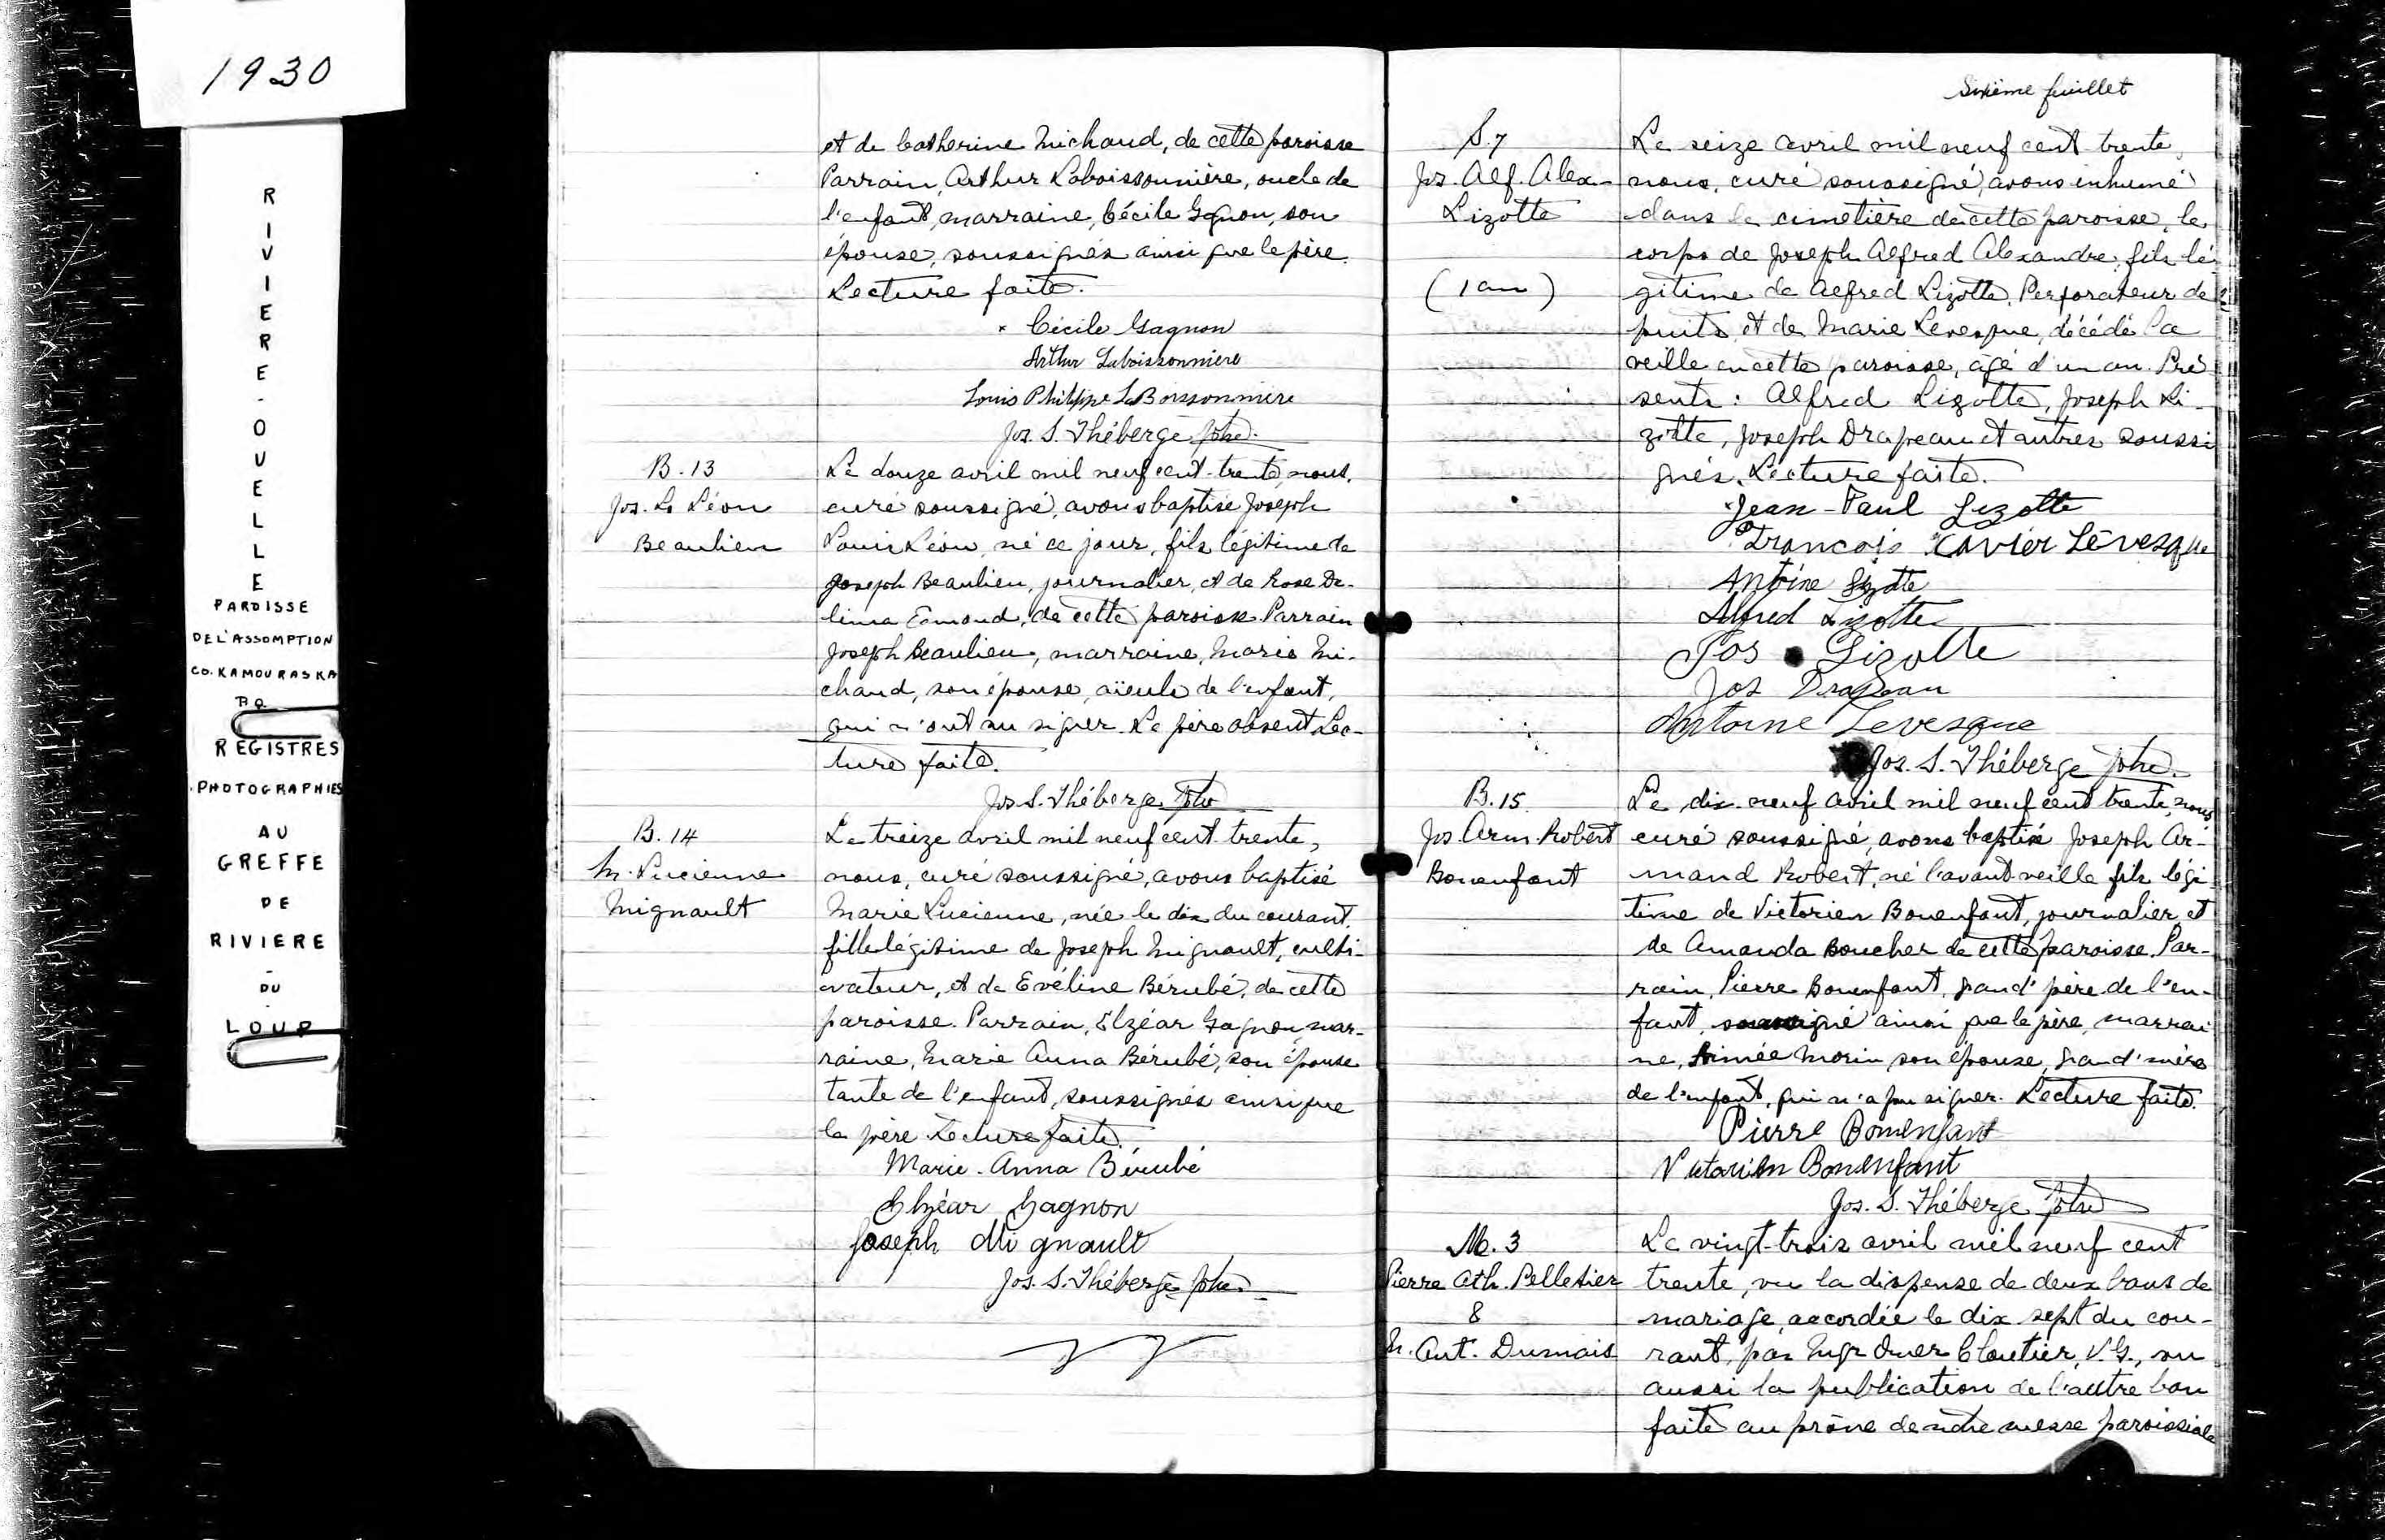 1930
RIVIERE-OUELLE
PAROISSE
DE L'ASSOMPTION
CO. KAMOURASKA
P.Q.
REGISTRES
PHOTOGRAPHIES
AU
GREFFE
DE
RIVIERE
-
DU
-
LOUP
et de Catherine Michaud, de cette paroisse
Parrain, Arthur Laboissonnière, oncle de
l'enfant, marraine, Cécile Gagnon, son
épouse, soussignés ainsi que le père.
Lecture faite.
Cécile Gagnon
Arthur Laboissonniere
Louis Philippe LaBoissonniere
Jos. S. Théberge ptre.
B. 13
Jos. Ls Léon
Beaulieu
Le douze avril mil neuf cent trente, nous,
curé soussigné, avons baptisé Joseph
Louis Léon, né ce jour, fils légitime de
Joseph Beaulieu, journalier, et de Rose De-
lima Emond, de cette paroisse. Parrain
Joseph Beaulieu, marraine, Marie Mi-
chaud, son épouse, aïeule de l'enfant,
qui n'ont su signer. Le père absent. Lec-
ture faite.
Jos S. Théberge ptre
B. 14
M. Lucienne
Mignault
Le treize avril mil neuf cent trente,
nous, curé soussigné, avons baptisé
Marie Lucienne, née le dix du courant,
fille légitime de Joseph Mignault, culti-
vateur, et de Evéline Bérubé, de cette
paroisse. Parrain, Elzéar Gagnon, mar-
raine, Marie Anna Bérubé, son épouse
tante de l'enfant, soussignés ainsi que
le père. Lecture faite.
Marie-Anna Bérubé
Elzéar Gagnon
Joseph Mignault
Jos. S. Théberge ptre
Sixième feuillet
S. 7
Jos. Alf. Alex-
Lizotte
(1 an)
Le seize avril mil neuf cent trente,
nous, curé soussigné, avons inhumé
dans le cimetière de cette paroisse, le
corps de Joseph Alfred Alexandre, fils lé
gitime de Alfred Lizotte, Perforateur de
puits, et de Marie Levesque, décédé la
veille en cette paroisse, âgé d'un an. Pré
sents: Alfred Lizotte, Joseph Li-
zotte, Joseph Drapeau et autres soussi
gnés. Lecture faite.
Jean-Paul Lizotte
François Xavier Lévesque
Antoine Lizotte
Alfred Lizotte
Jos Lizotte
Jos Drapeau
Antoine Levesque
Jos. S. Théberge ptre.
B. 15
Jos. Arm. Robert
Bonenfant
Le dix-neuf avril mil neuf cent trente, nous
curé soussigné, avons baptisé Joseph Ar-
mand Robert, né l'avant-veille fils légi
time de Victorien Bonenfant, journalier, et
de Amanda Boucher de cette paroisse. Par-
rain, Pierre Bonenfant, grand'père de l'en-
fant, soussigné ainsi que le père, marrai
ne, Aimée Morin son épouse, grand'mère
de l'enfant, qui n'a pu signer. Lecture faite.
Pierre Bonenfant
Victorien Bonenfant
Jos. S. Théberge ptre
M. 3
Pierre Ath. Pelletier
&
M. Ant. Dumais
Le vingt-trois avril mil neuf cent
trente, vu la dispense de deux bans de
mariage, accordée le dix sept du cou-
rant, par Mgr Omer Cloutier, V.G., vu
aussi la publication de l'autre ban
faite au prône de notre messe paroissiale